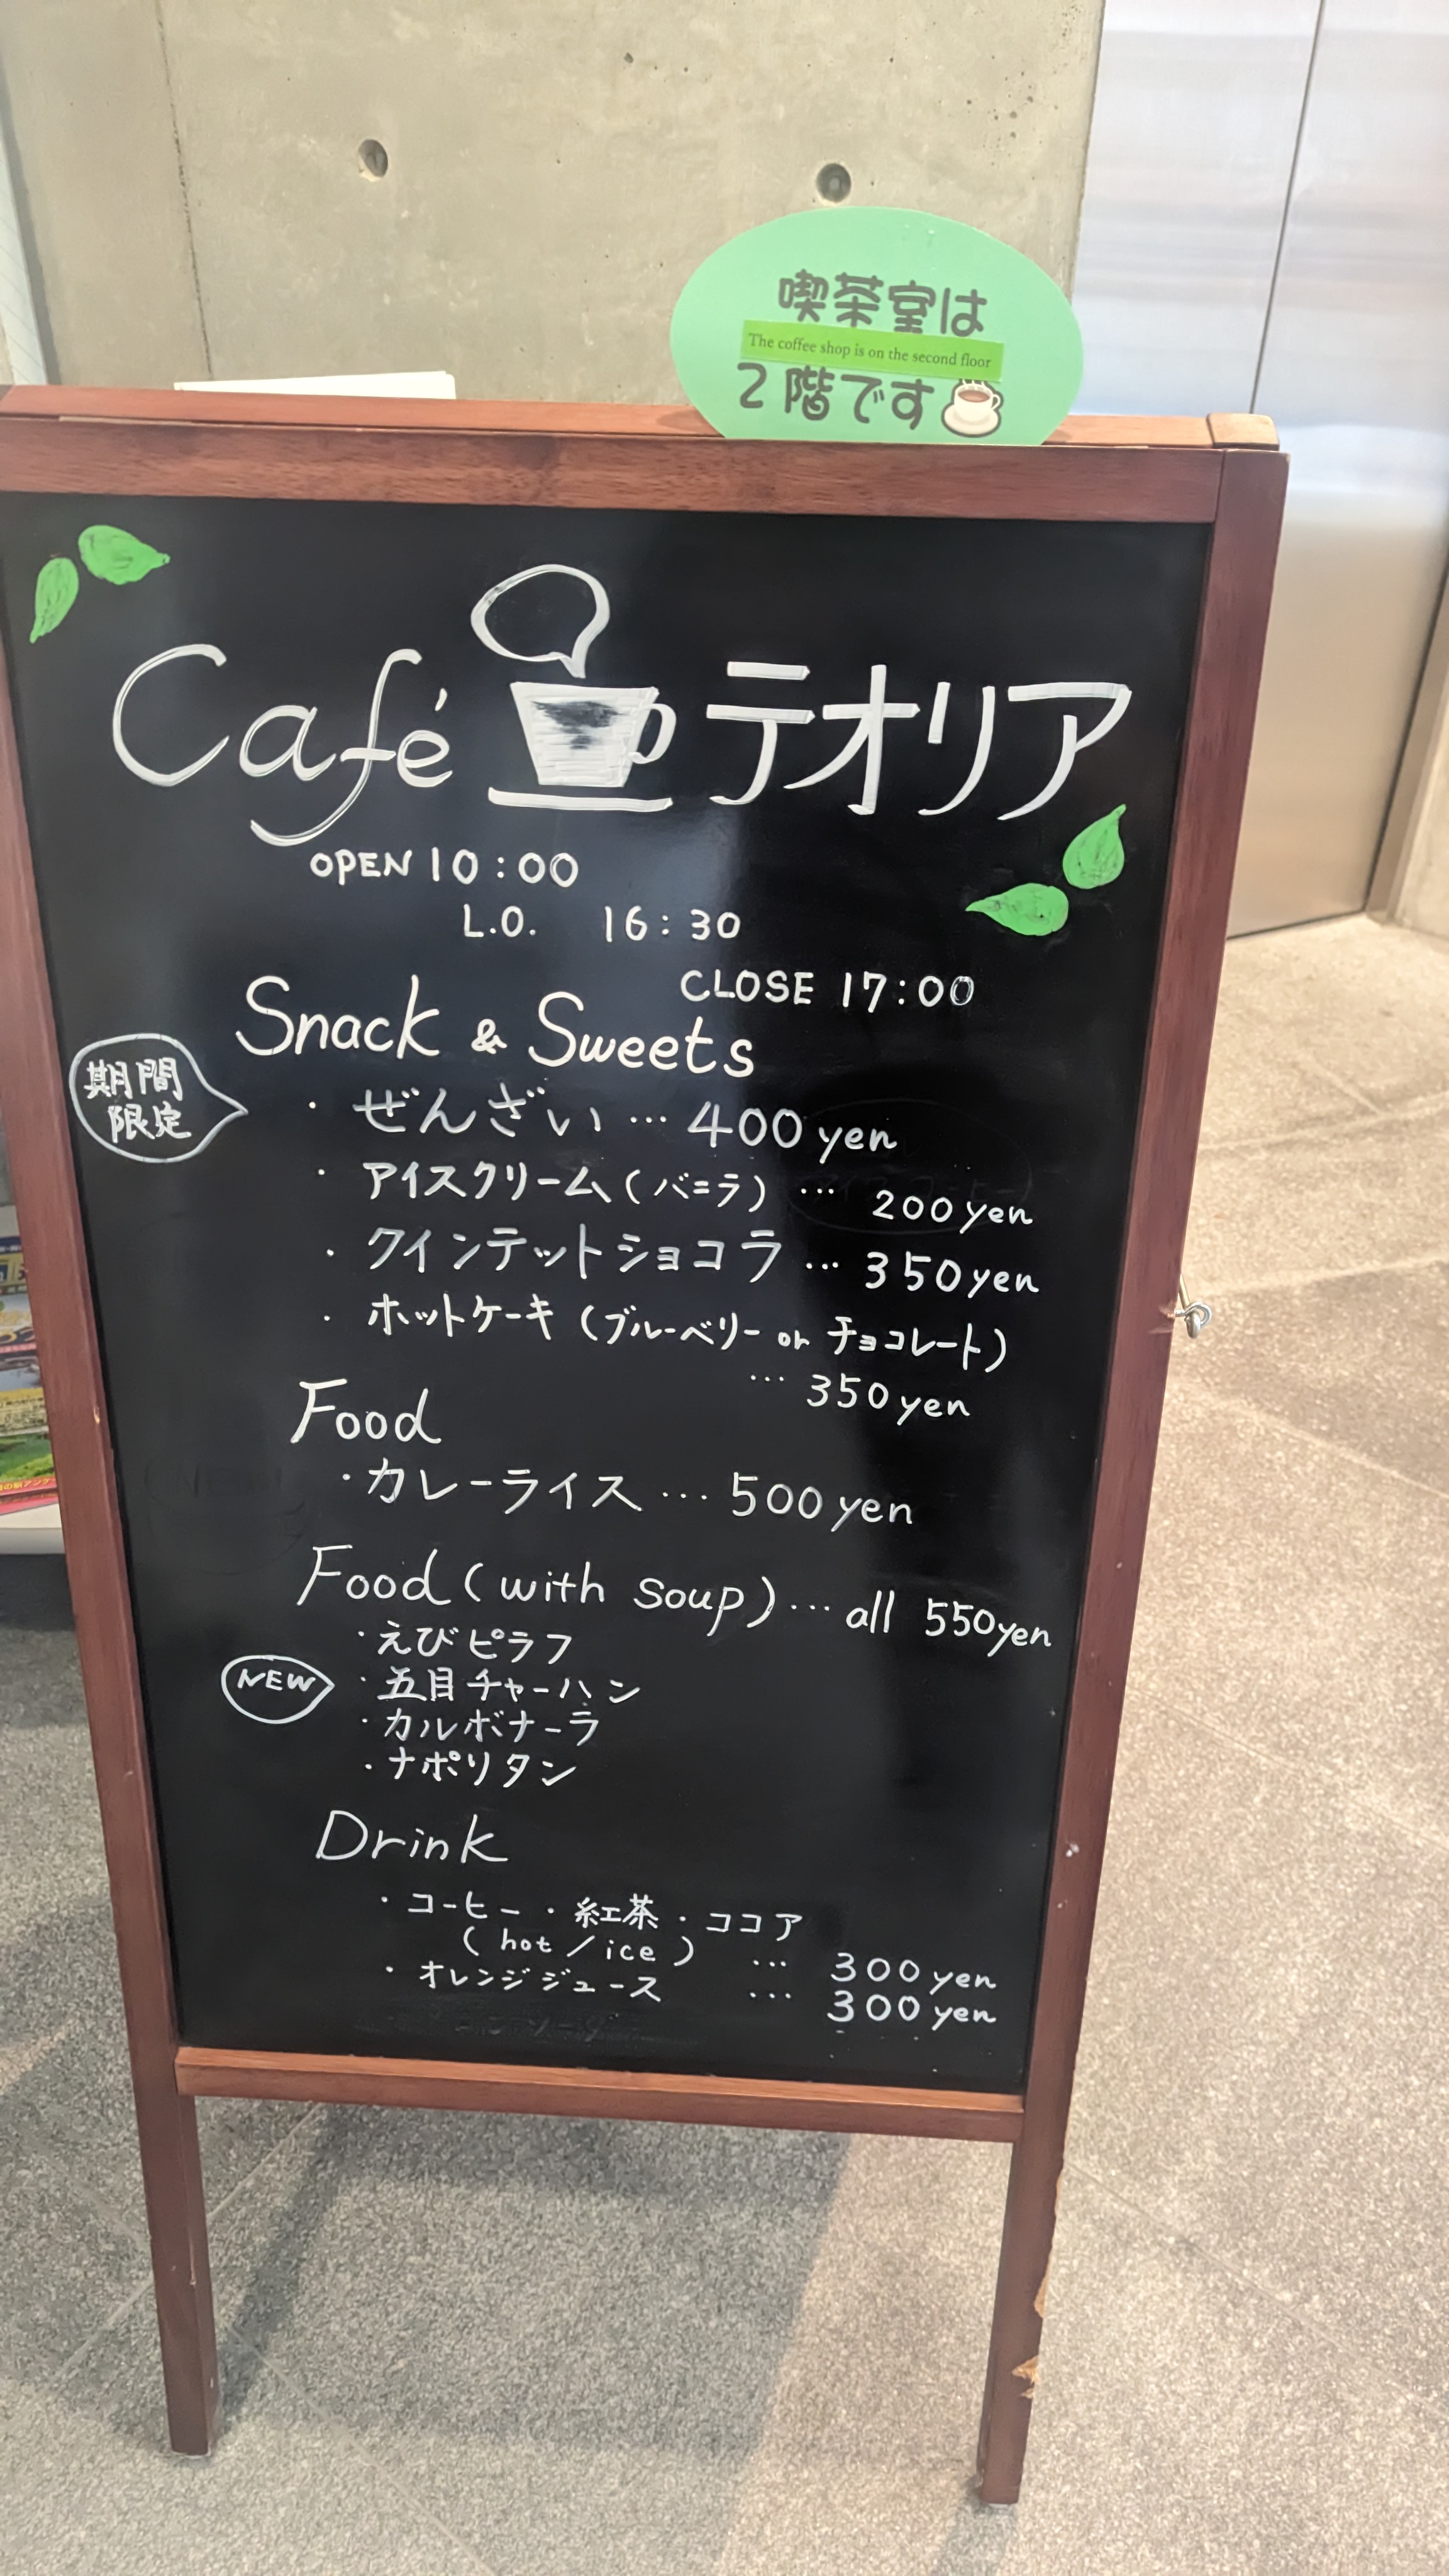 喫茶室は
The coffee shop is on the second floor
2階です
Café テオリア
OPEN 10:00
L.O. 16:30
CLOSE 17:00
Snack & Sweets
期間
限定
・ぜんざい…400yen
・アイスクリーム(バニラ)…200yen
・クインテットショコラ…350yen
・ホットケーキ(ブルーベリー or チョコレート)
…350yen
Food
・カレーライス…500yen
Food(with soup)…all 550yen
・えびピラフ
NEW ・五目チャーハン
・カルボナーラ
・ナポリタン
Drink
・コーヒー・紅茶・ココア
(hot/ice) … 300yen
・オレンジジュース … 300yen